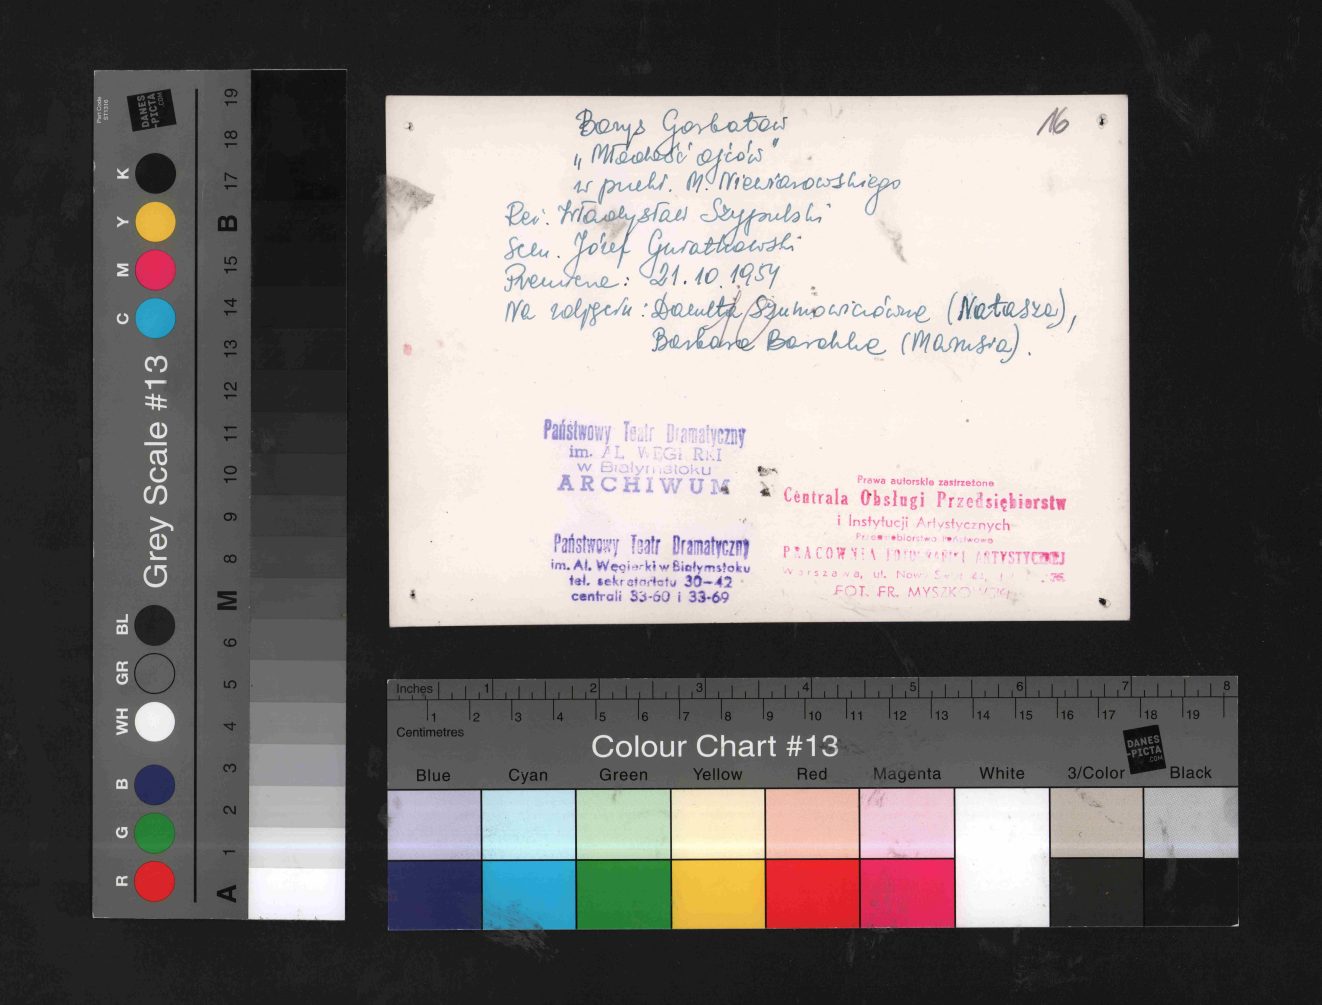 Borys Gorbatow
„Młodość ojców"
w przekł. M. Niewiarowskiego
Reż. Władysław Szypulski
Scen. Józef
Premiera: 21.10.1954
Na zdjęciu: Danuta Szumowiczówna (Natasza),
Barbara Barchke (Marusia).
16
Państwowy Teatr Dramatyczny
im. AL WĘGI RKI
w Białymstoku
ARCHIWUM
Państwowy Teatr Dramatyczny
im. Al. Węgierki w Białymstoku
tel. sekretariatu 30-42
centrali 33-60 i 33-69
Prawa autorskie zastrzeżone
Centrala Obsługi Przedsiębiorstw
i Instytucji Artystycznych
Przedsiębiorstwo Państwowe
PRACOWNIA FOTOGRAFIKI ARTYSTYCZNEJ
Warszawa, ul. Nowy Świat
FOT. FR. MYSZKOWSKI
Part Code
ST1316
DANES
-PICTA
.COM
Grey Scale #13
R G B WH GR BL C M Y K
A 1 2 3 4 5 6 M 8 9 10 11 12 13 14 15 B 17 18 19
Inches 1 2 3 4 5 6 7 8
1 2 3 4 5 6 7 8 9 10 11 12 13 14 15 16 17 18 19
Centimetres
Colour Chart #13
DANES
-PICTA
.COM
Blue Cyan Green Yellow Red Magenta White 3/Color Black